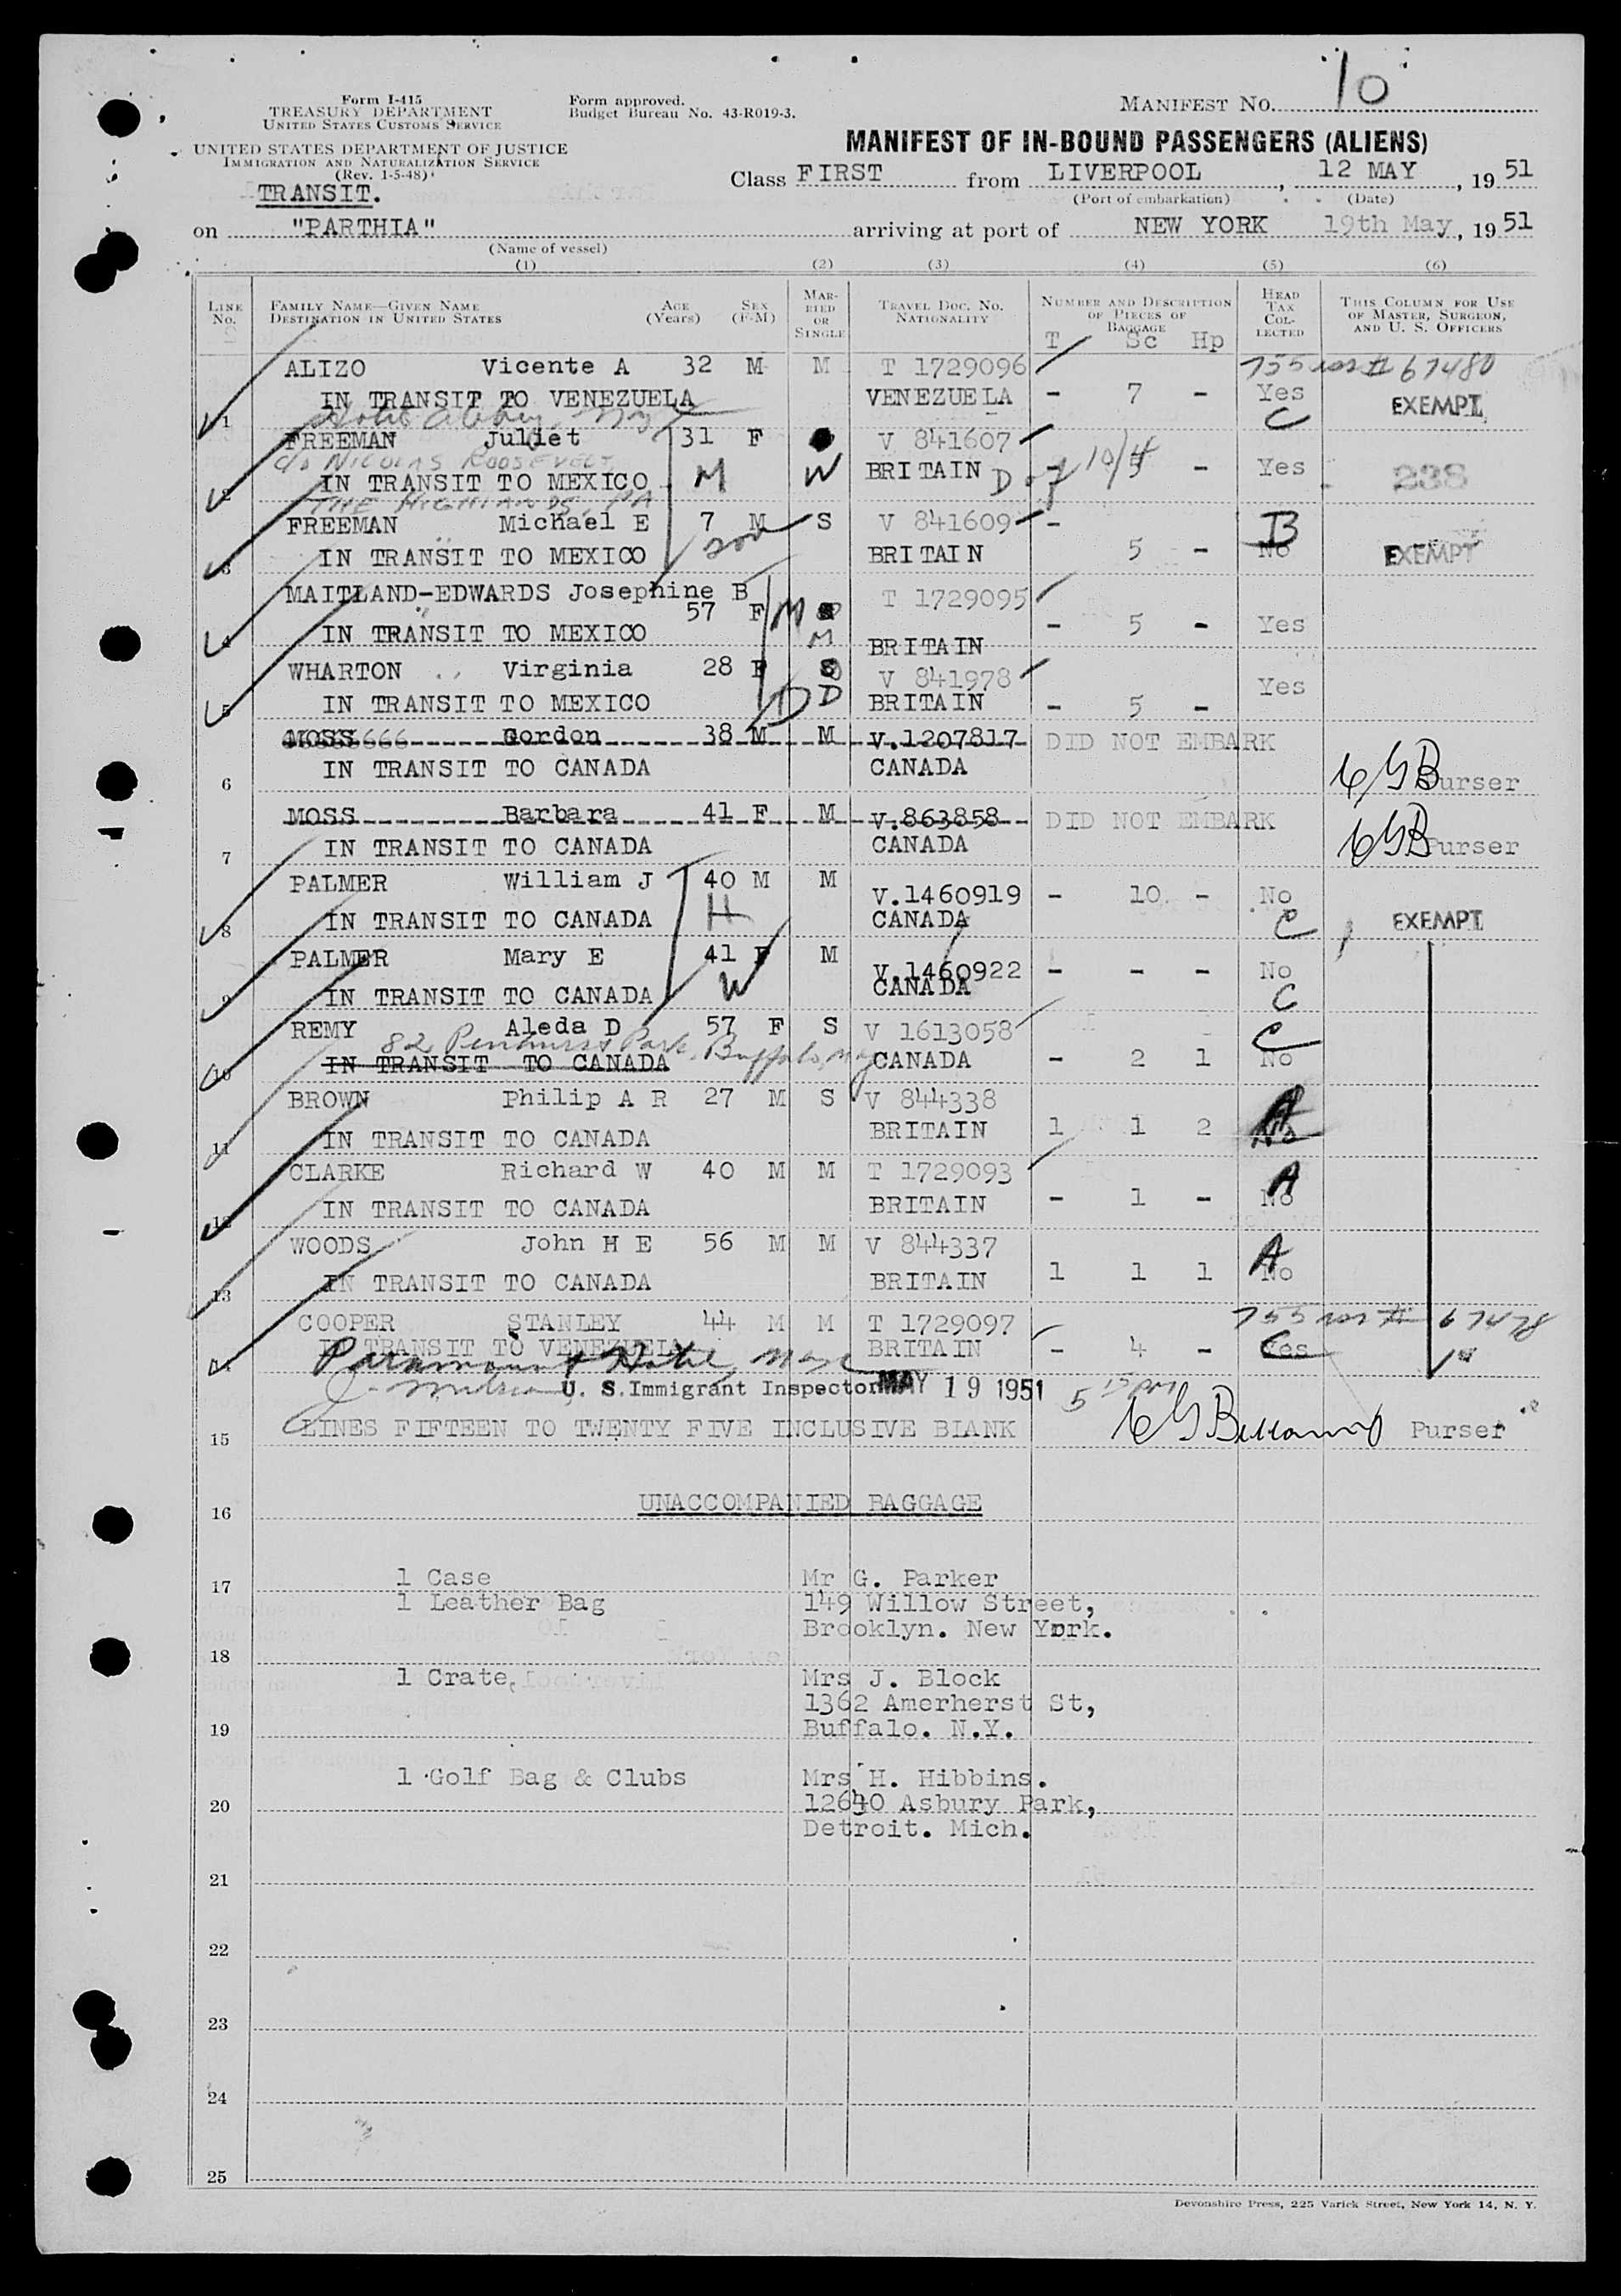 Form I-415
TREASURY DEPARTMENT
UNITED STATES CUSTOMS SERVICE
UNITED STATES DEPARTMENT OF JUSTICE
IMMIGRATION AND NATURALIZATION SERVICE
(Rev. 1-5-48)
TRANSIT.
Form approved.
Budget Bureau No. 43-R019-3.
MANIFEST No. 10
MANIFEST OF IN-BOUND PASSENGERS (ALIENS)
Class FIRST from LIVERPOOL, 12 MAY, 1951
(Port of embarkation) (Date)
on "PARTHIA" arriving at port of NEW YORK 19th May, 1951
(Name of vessel)
(1) (2) (3) (4) (5) (6)
LINE No. FAMILY NAME—GIVEN NAME DESTINATION IN UNITED STATES AGE (Years) SEX (F-M) MARRIED OR SINGLE TRAVEL DOC. NO. NATIONALITY NUMBER AND DESCRIPTION OF PIECES OF BAGGAGE HEAD TAX COLLECTED THIS COLUMN FOR USE OF MASTER, SURGEON, AND U. S. OFFICERS
T Sc Hp
ALIZO Vicente A 32 M M T 1729096 67480
1 IN TRANSIT TO VENEZUELA VENEZUELA - 7 - Yes C EXEMPT
FREEMAN Juliet 31 F W V 841607
c/o NICOLAS ROOSEVELT
2 IN TRANSIT TO MEXICO M BRITAIN - 5 - Yes 238
THE HIGHLANDS, PA
FREEMAN Michael E 7 M S V 841609 - B
3 IN TRANSIT TO MEXICO son BRITAIN 5 - No EXEMPT
MAITLAND-EDWARDS Josephine B
57 F M S T 1729095
4 IN TRANSIT TO MEXICO M BRITAIN - 5 - Yes
WHARTON Virginia 28 F S V 841978 Yes
5 IN TRANSIT TO MEXICO D D BRITAIN - 5 -
MOSS Gordon 38 M M V.1207817 DID NOT EMBARK
6 IN TRANSIT TO CANADA CANADA CGB Purser
MOSS Barbara 41 F M V.863858 DID NOT EMBARK
7 IN TRANSIT TO CANADA CANADA CGB Purser
PALMER William J 40 M M V.1460919 - 10 - No
8 IN TRANSIT TO CANADA H CANADA C EXEMPT
PALMER Mary E 41 F M V.1460922 - - - No
9 IN TRANSIT TO CANADA W CANADA C
REMY Aleda D 57 F S V 1613058 C
82 Penhurst Park, Buffalo, NY
10 IN TRANSIT TO CANADA CANADA - 2 1 No
BROWN Philip A R 27 M S V 844338
11 IN TRANSIT TO CANADA BRITAIN 1 1 2 A No
CLARKE Richard W 40 M M T 1729093
12 IN TRANSIT TO CANADA BRITAIN - 1 - A No
WOODS John H E 56 M M V 844337
13 IN TRANSIT TO CANADA BRITAIN 1 1 1 A No
COOPER STANLEY 44 M M T 1729097
14 IN TRANSIT TO VENEZUELA BRITAIN - 4 - Yes
Paramount Hotel
U. S. Immigrant Inspector MAY 19 1951
15 LINES FIFTEEN TO TWENTY FIVE INCLUSIVE BLANK Purser
16 UNACCOMPANIED BAGGAGE
17 1 Case Mr G. Parker
1 Leather Bag 149 Willow Street,
Brooklyn. New York.
18
1 Crate, Mrs J. Block
1362 Amerherst St,
19 Buffalo. N.Y.
1 Golf Bag & Clubs Mrs H. Hibbins.
20 12640 Asbury Park,
Detroit. Mich.
21
22
23
24
25
Devonshire Press, 225 Varick Street, New York 14, N. Y.